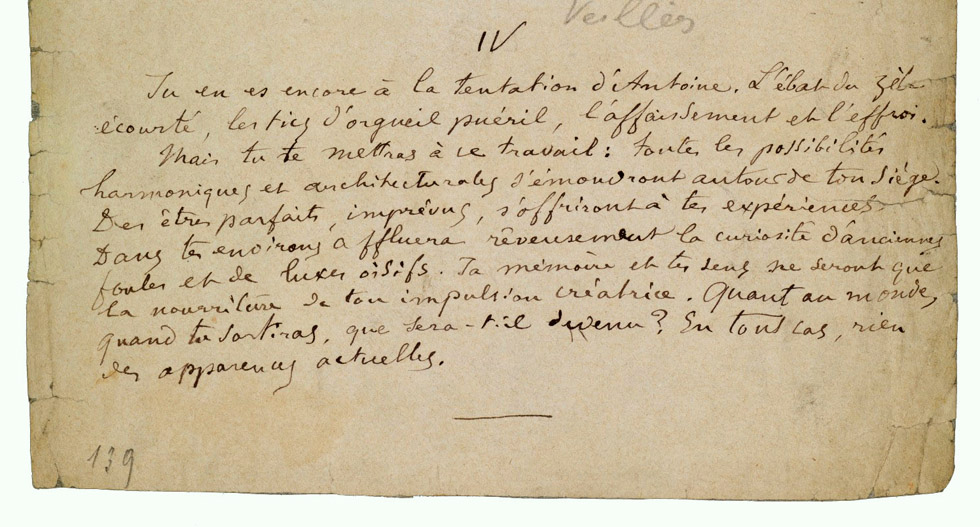 Veillées
IV
Tu en es encore à la tentation d'Antoine. L'ébat du zèle
écourté, les tics d'orgueil puéril, l'affaissement et l'effroi.
Mais tu te mettras à ce travail : toutes les possibilités
harmoniques et architecturales s'émouvront autour de ton siége.
Des êtres parfaits, imprévus, s'offriront à tes expériences.
Dans tes environs affluera rêveusement la curiosité d'anciennes
foules et de luxes oisifs. Ta mémoire et tes sens ne seront que
la nourriture de ton impulsion créatrice. Quant au monde,
quand tu sortiras, que sera-t-il devenu ? En tout cas, rien
des apparences actuelles.
139